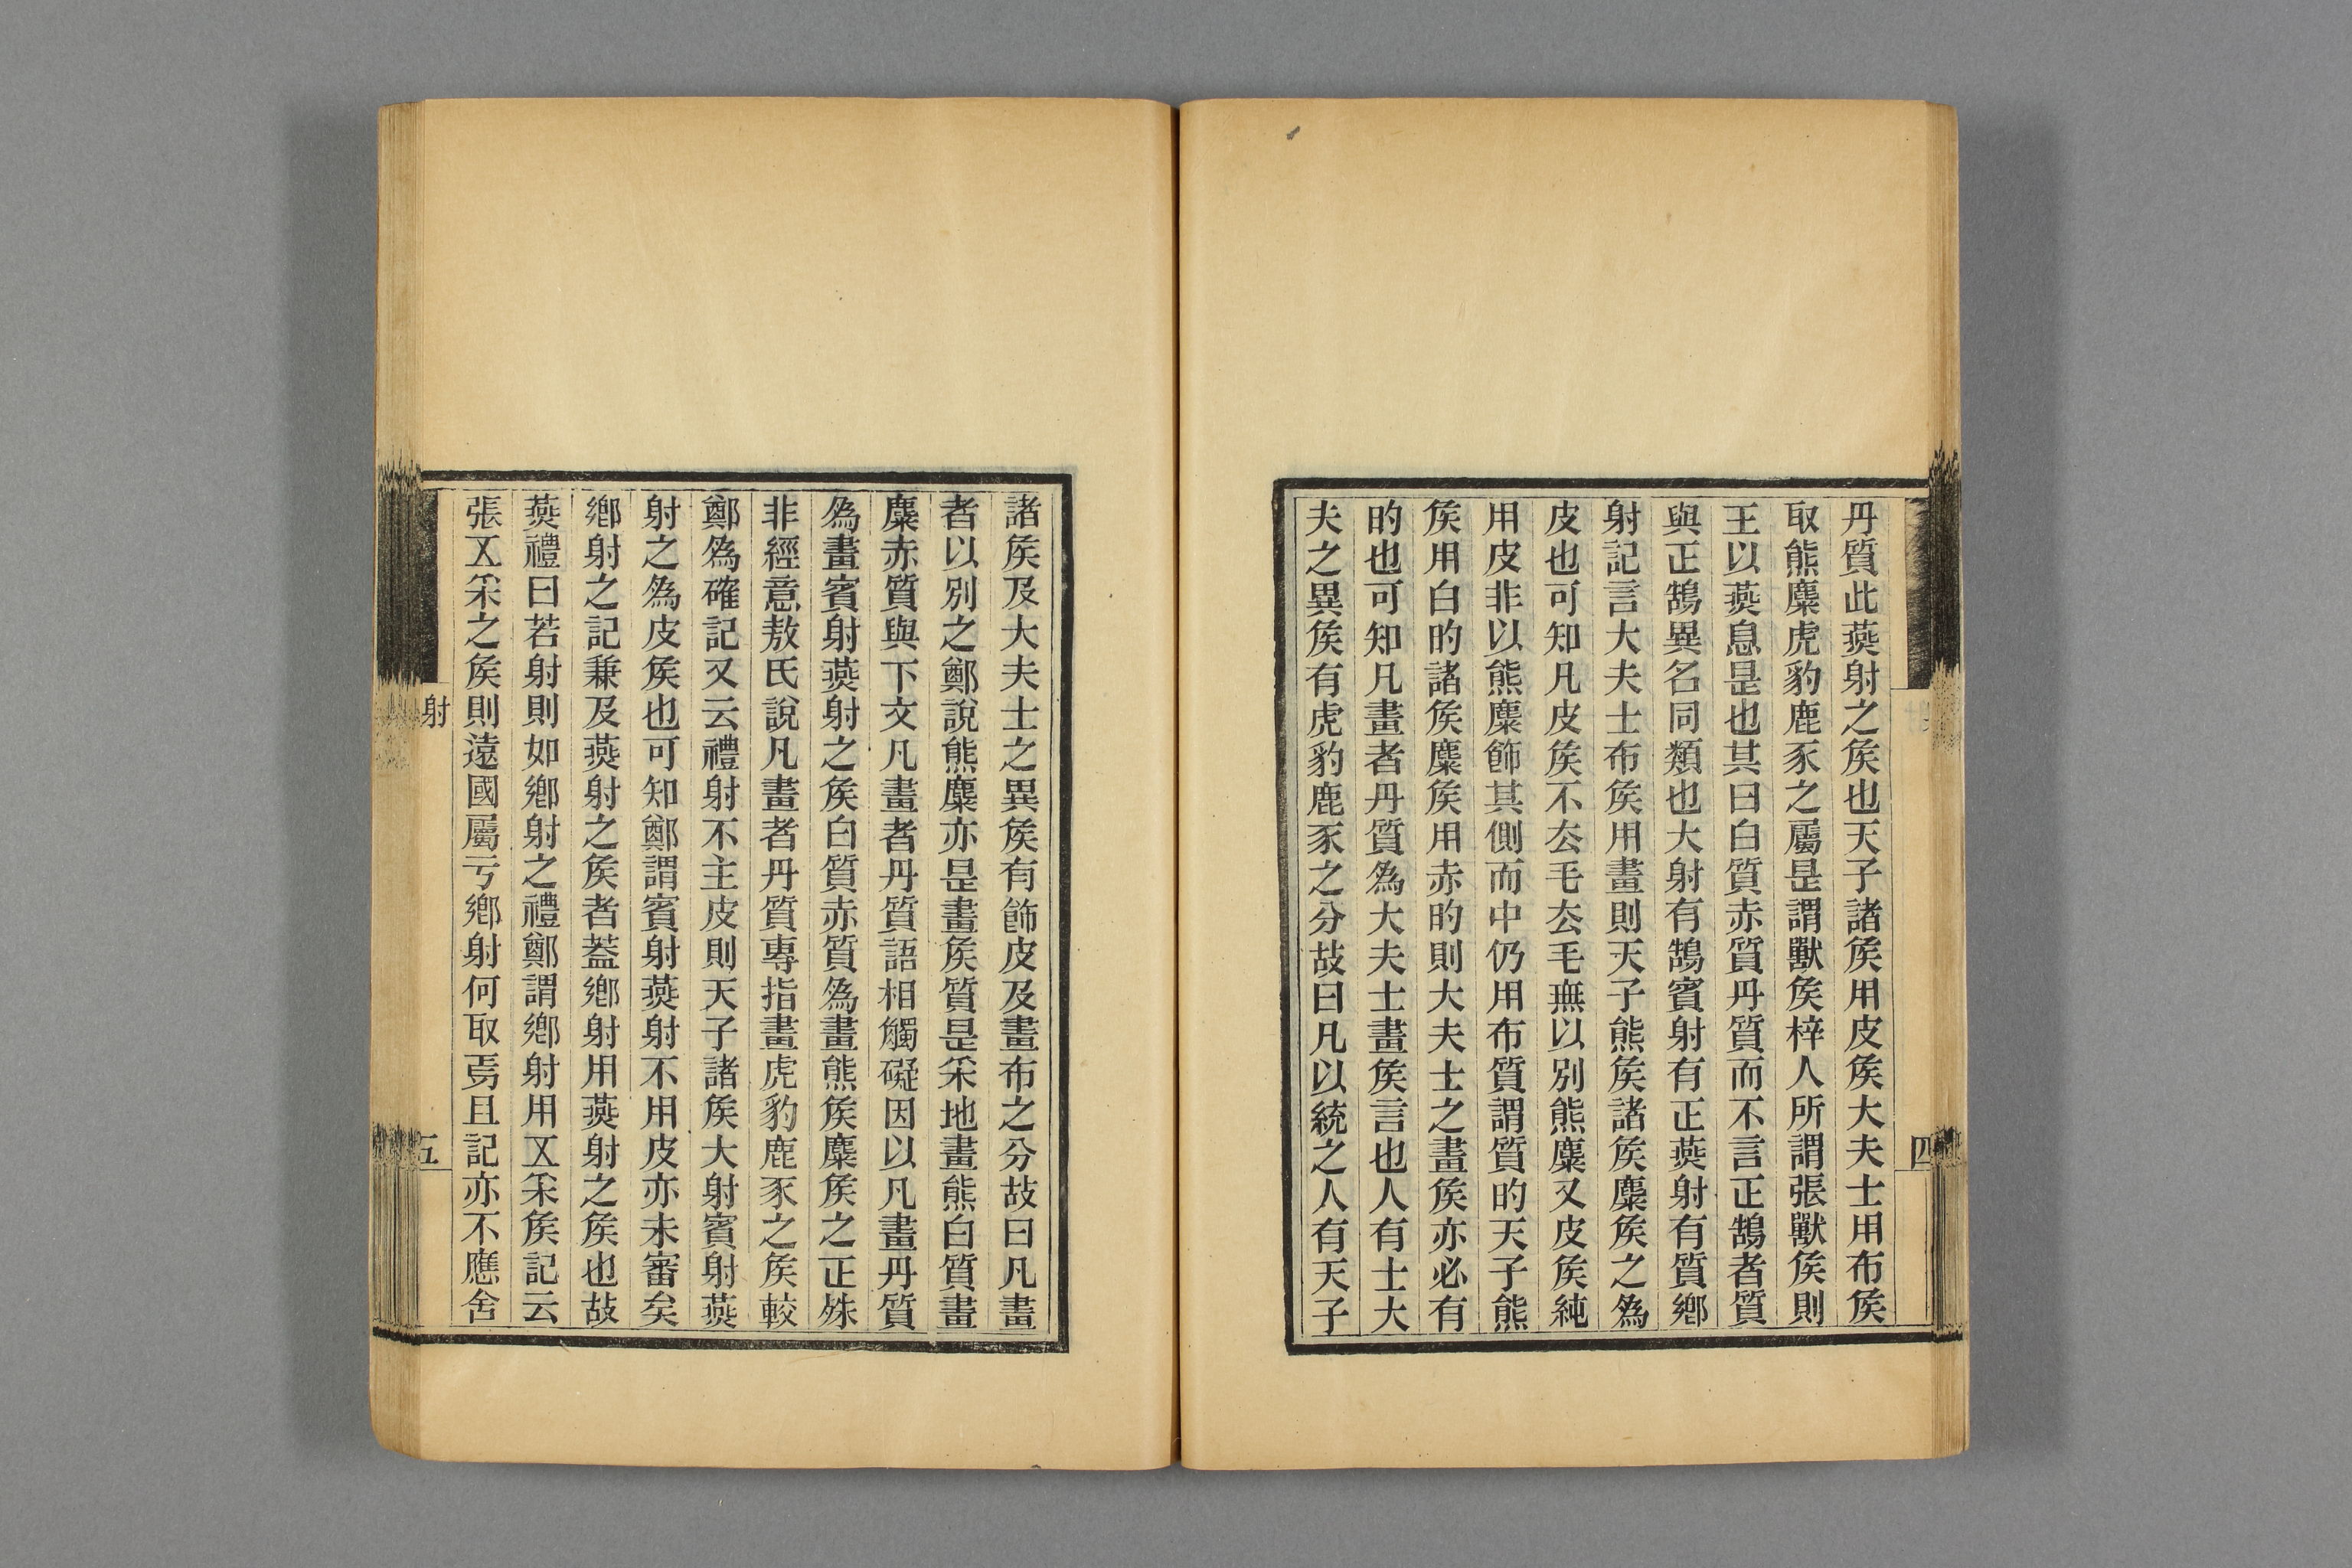 丹質此燕射之矦也天子諸矦用皮矦大夫士用布矦
取熊麋虎豹鹿豕之屬昰謂獸矦梓人所謂張獸矦則
王以燕息昰也其曰白質赤質丹質而不言正鵠者質
與正鵠異名同類也大射有鵠賓射有正燕射有質鄉
射記言大夫士布矦用畫則天子熊矦諸矦麋矦之爲
皮也可知凡皮矦不厺毛厺毛無以別熊麋又皮矦純
用皮非以熊麋飾其側而中仍用布質謂質旳天子熊
矦用白旳諸矦麋矦用赤旳則大夫士之畫矦亦必有
旳也可知凡畫者丹質爲大夫士畫矦言也人有士大
夫之異矦有虎豹鹿豕之分故曰凡以統之人有天子
四
諸矦及大夫士之異矦有飾皮及畫布之分故曰凡畫
者以別之鄭說熊麋亦昰畫矦質昰采地畫熊白質畫
麋赤質與下文凡畫者丹質語相觸礙因以凡畫丹質
爲畫賓射燕射之矦白質赤質爲畫熊矦麋矦之正殊
非經意敖氏說凡畫者丹質專指畫虎豹鹿豕之矦較
鄭爲確記又云禮射不主皮則天子諸矦大射賓射燕
射之爲皮矦也可知鄭謂賓射燕射不用皮亦未審矣
鄉射之記兼及燕射之矦者葢鄉射用燕射之矦也故
燕禮曰若射則如鄉射之禮鄭謂鄉射用㐅采矦記云
張㐅采之矦則遠國屬亏鄉射何取焉且記亦不應舍
射
五